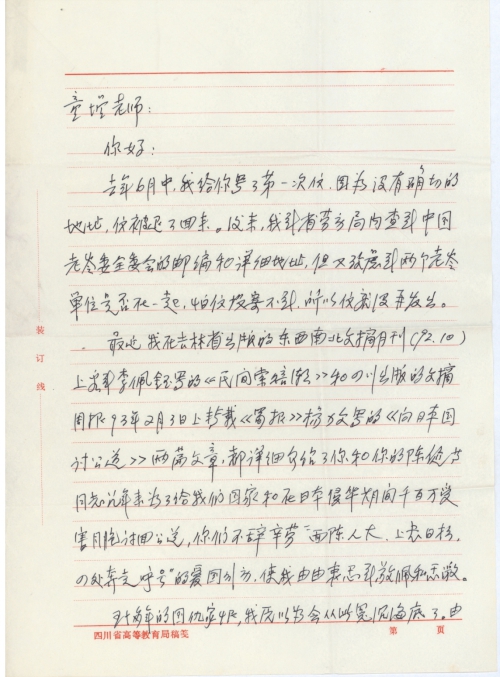 童增老师：
你好！
去年6月中，我给你写了第一次信，因为没有确切的
地址，信被退了回来。后来，我到省劳方局内查到中国
老龄委全委会的邮编和详细地址，但又考虑到两个老龄
单位是否在一起，怕信投寄不到，所以信就没再发出。
最近我在吉林省出版的东西南北文摘月刊（92.10）
上看到李佩钰写的《民间索赔潮》和四川出版的文摘
周报93年2月3日上转载《蜀报》杨文写的《向日本国
讨公道》两篇文章，都详细介绍了你和你的陈健
同志几年来为了给我们国家和在日本侵华期间千百万受
害同胞讨回公道，你们不辞辛劳"两陈人大、上书日相，
四处奔走呼号"的爱国行动，使我由由衷感到敬佩和感激。
多年的国仇家恨，我原以为会从此冤沉海底了。由
装订线
四川省高等教育局稿笺
第 页